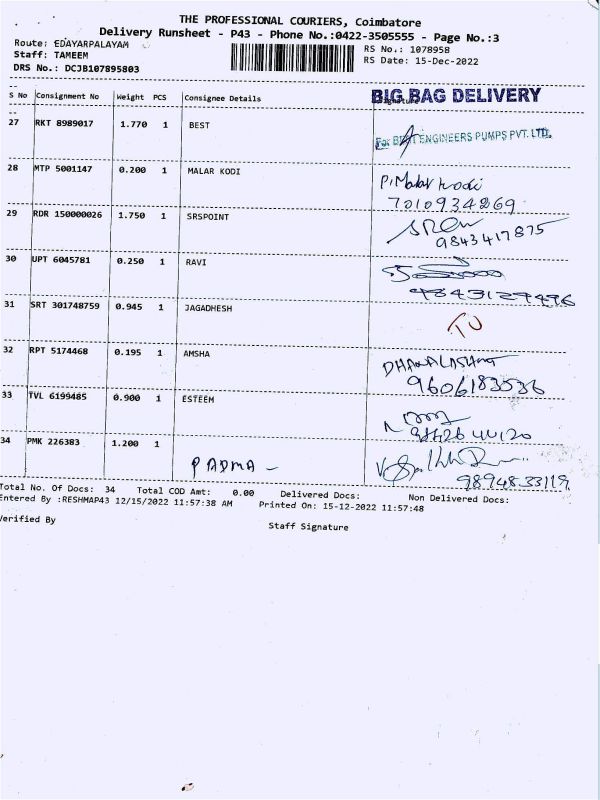 THE PROFESSIONAL COURIERS, Coimbatore
Delivery Runsheet - P43 - Phone No.:0422-3505555 - Page No.:3
Route: EDAYARPALAYAM
RS No.: 1078958
Staff: TAMEEM
RS Date: 15-Dec-2022
DRS No.: DCJB107895803
BIG BAG DELIVERY
S No Consignment No Weight PCS Consignee Details Signature
27 RKT 8989017 1.770 1 BEST
For BEST ENGINEERS PUMPS PVT. LTD.
28 MTP 5001147 0.200 1 MALAR KODI
P. Malar kodi
7010934869
29 RDR 150000026 1.750 1 SRSPOINT
9843417875
30 UPT 6045781 0.250 1 RAVI
9843129496
31 SRT 301748759 0.945 1 JAGADHESH
32 RPT 5174468 0.195 1 AMSHA
9606183536
33 TVL 6199485 0.900 1 ESTEEM
34 PMK 226383 1.200 1
PADMA -
9894833119
Total No. Of Docs: 34 Total COD Amt: 0.00 Delivered Docs: Non Delivered Docs:
Entered By :RESHMAP43 12/15/2022 11:57:38 AM Printed On: 15-12-2022 11:57:48
Verified By
Staff Signature